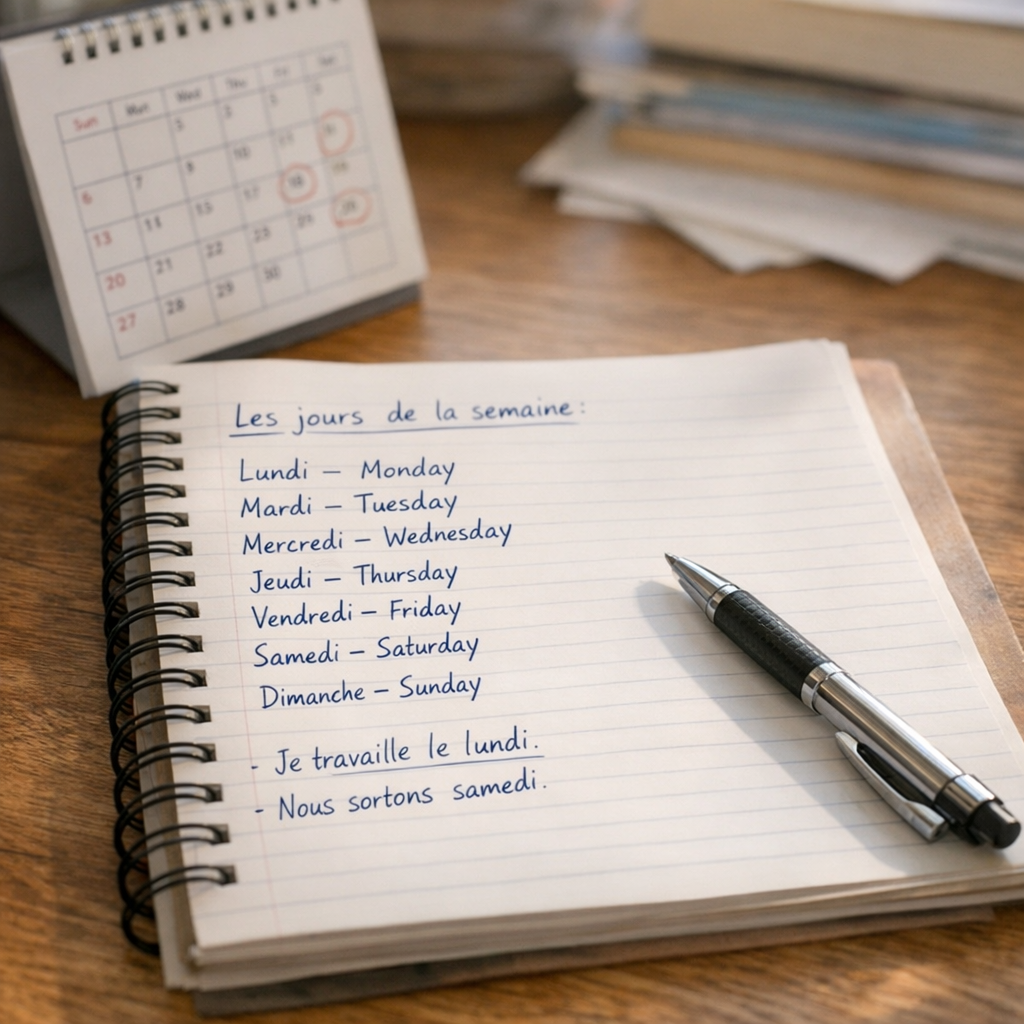 Sun Mon Wed Thu Fri Sat
6 7 9 10 11
13 11 15 17 18
20 21 22 23
27 28 29 30
Les jours de la semaine:
Lundi – Monday
Mardi – Tuesday
Mercredi – Wednesday
Jeudi – Thursday
Vendredi – Friday
Samedi – Saturday
Dimanche – Sunday
- Je travaille le lundi.
- Nous sortons samedi.